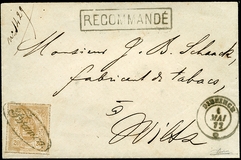 RECOMMANDÉ
Monsieur J. B. Schenck,
fabricant de tabacs,
à
Wiltz
DIEKIRCH
MAI
72